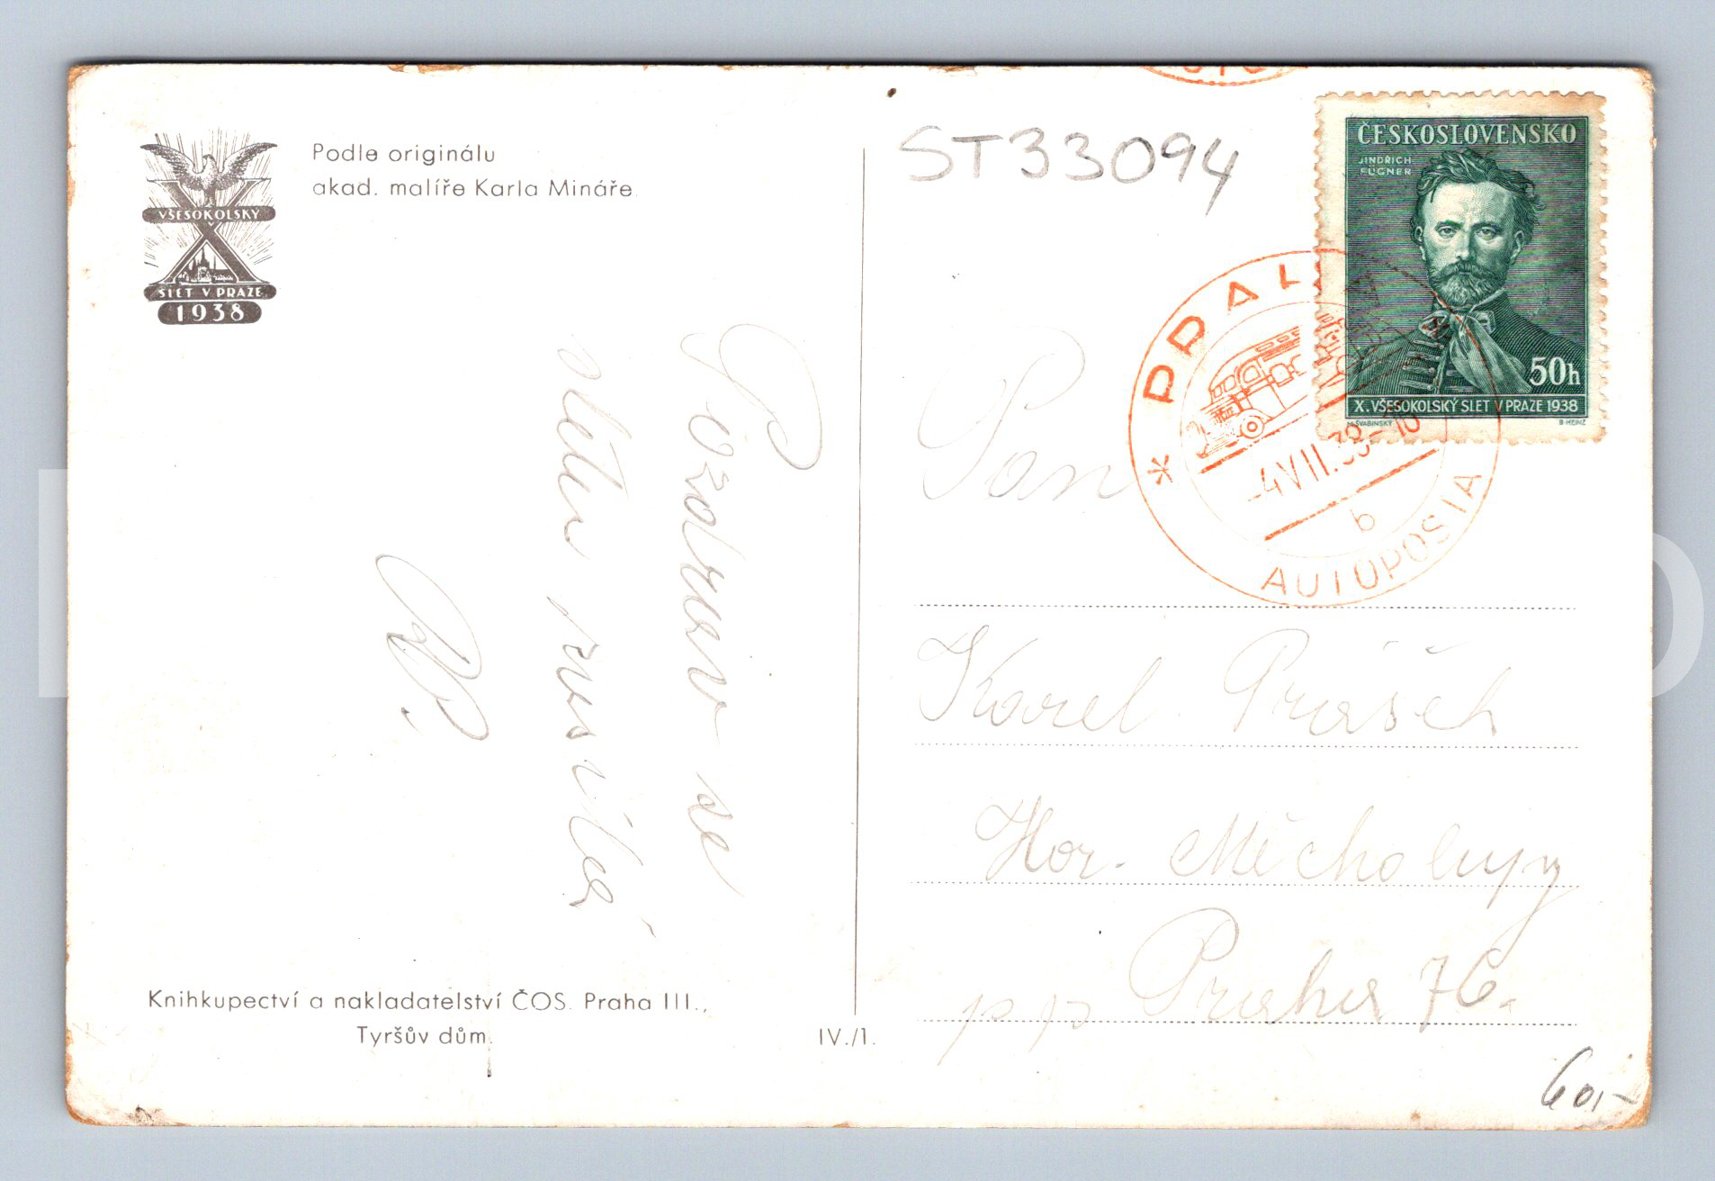 Podle originálu
akad. malíře Karla Mináře.
VŠESOKOLSKÝ
X
SLET V PRAZE
1938
Pozdrav se
sletu
Knihkupectví a nakladatelství ČOS. Praha III.,
Tyršův dům.
IV./1.
ST33094
ČESKOSLOVENSKO
JINDŘICH
FÜGNER
50h
X. VŠESOKOLSKÝ SLET V PRAZE 1938
M. ŠVABINSKÝ
B. HEINZ
* PRAHA
-4.VII.38-16
b
AUTOPOŠTA
Pan
Karel
Hor. Měcholupy
p. p. Praha 76.
60,-